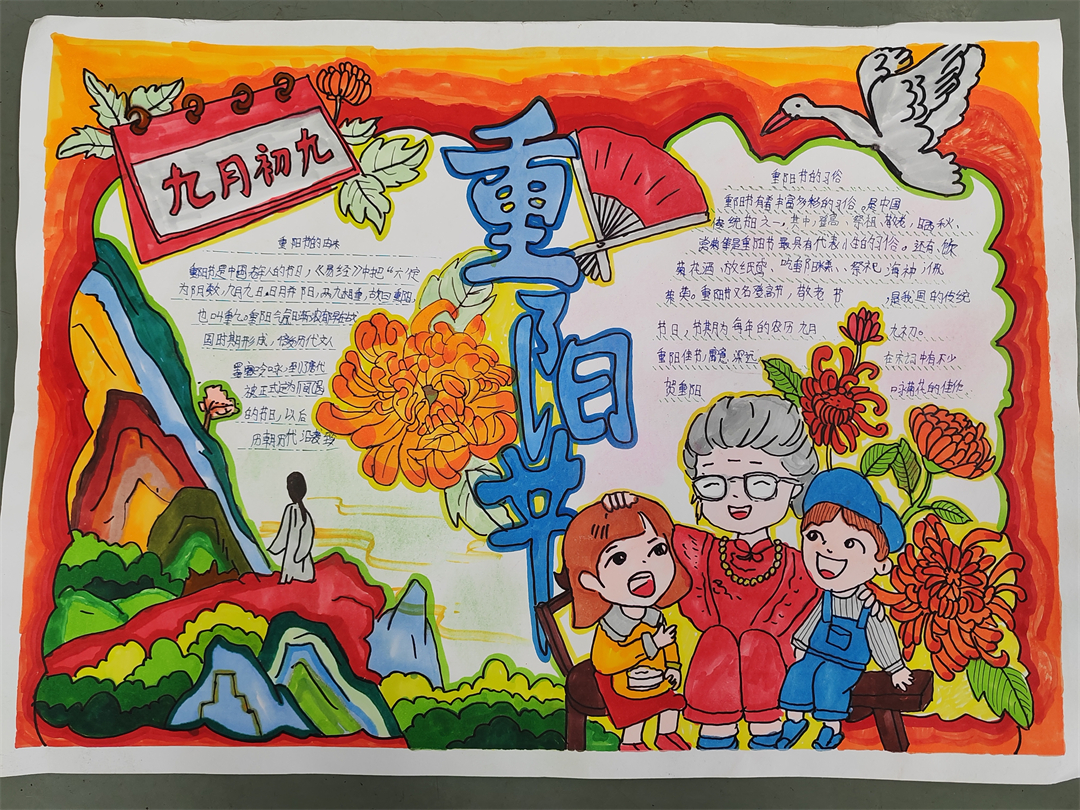 九月初九
重阳节
重阳节的由来
重阳节是中国老年人的节日，《易经》中把"六"定
为阴数，九月九日，日月并阳，两九相重，故曰重阳，
也叫重九。重阳节
国时期形成，历代文人
墨客吟咏，到了唐代
被正式定为民间
的节日，以后
历朝历代沿袭至
重阳节的习俗
重阳节有着丰富多彩的习俗。是中国
传统节日之一，其中登高，祭祖，敬老，晒秋，
赏菊等是重阳节最具有代表性的习俗。还有，饮
菊花酒，放纸鸢，吃重阳糕，祭祀海神，佩
茱萸。重阳节又名登高节，敬老节，是我国的传统
节日，节期为每年的农历九月九初。
重阳佳节，寓意深远，在宋词中有不少
贺重阳咏菊花的佳作